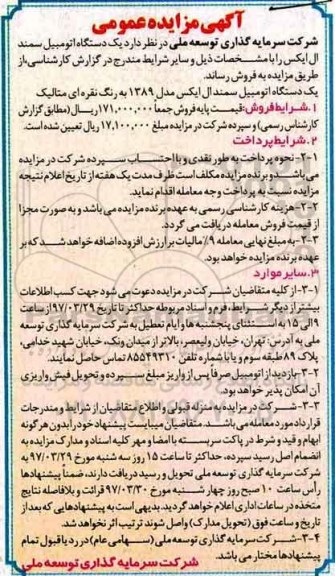 آگهی مزایده عمومی
شرکت سرمایه گذاری توسعه ملی در نظر دارد یک دستگاه اتومبیل سمند
ال ایکس را با مشخصات ذیل و سایر شرایط مندرج در گزارش کارشناسی، از
طریق مزایده به فروش رساند.
یک دستگاه اتومبیل سمند ال ایکس مدل ۱۳۸۹ به رنگ نقره ای متالیک
۱. شرایط فروش: قیمت پایه فروش جمعاً ۱۷۱,۰۰۰,۰۰۰ ریال (مطابق گزارش
کارشناس رسمی) و سپرده شرکت در مزایده مبلغ ۱۷,۱۰۰,۰۰۰ ریال تعیین شده است.
۲. شرایط پرداخت
۲-۱- نحوه پرداخت به طور نقدی و با احتساب سپرده شرکت در مزایده
می باشد و برنده مزایده مکلف است ظرف مدت یک هفته از تاریخ اعلام نتیجه
مزایده نسبت به پرداخت وجه معامله اقدام نماید.
۲-۲- هزینه کارشناسی رسمی به عهده برنده مزایده می باشد و به صورت مجزا
از قیمت فروش معامله دریافت می گردد.
۲-۳- به مبلغ نهایی معامله ۹٪ مالیات بر ارزش افزوده اضافه خواهد شد که بر
عهده برنده مزایده خواهد بود.
۳. سایر موارد
۳-۱- از کلیه متقاضیان شرکت در مزایده دعوت می شود جهت کسب اطلاعات
بیشتر از دیگر شرایط، فرم و اسناد مربوطه حداکثر تا تاریخ ۹۷/۰۳/۲۹ از ساعت
۹ الی ۱۵ به استثنای پنجشنبه ها و ایام تعطیل به شرکت سرمایه گذاری توسعه
ملی به آدرس: تهران، خیابان ولیعصر، بالاتر از میدان ونک، خیابان شهید خدامی،
پلاک ۸۹ طبقه سوم و یا با شماره تلفن ۸۵۵۴۹۳۱۰ تماس حاصل نمایند.
۳-۲- بازدید از اتومبیل صرفاً پس از واریز مبلغ سپرده و تحویل فیش واریزی
آن امکان پذیر خواهد بود.
۳-۳- شرکت در مزایده به منزله قبولی و اطلاع متقاضیان از شرایط و مندرجات
قرارداد مورد معامله می باشد. متقاضیان میبایست پیشنهاد خود را بدون هرگونه
ابهام و قید و شرط در پاکت سربسته با امضا و مهر کلیه اسناد و مدارک مزایده به
انضمام اصل رسید سپرده، حداکثر تا ساعت ۱۵ روز سه شنبه مورخ ۹۷/۰۳/۲۹ به
شرکت سرمایه گذاری توسعه ملی تحویل و رسید دریافت دارند، ضمناً پیشنهادها
رأس ساعت ۱۰ صبح روز چهارشنبه مورخ ۹۷/۰۳/۳۰ قرائت و بلافاصله نتایج
متخذه در ساعات اداری اعلام خواهد گردید. بدیهی است به پیشنهادهایی که بعد از
تاریخ و ساعت فوق (تحویل مدارک) واصل شوند ترتیب اثر نخواهد شد.
۳-۴- شرکت سرمایه گذاری توسعه ملی (سهامی عام) در رد یا قبول تمام
پیشنهادها مختار می باشد.
شرکت سرمایه گذاری توسعه ملی